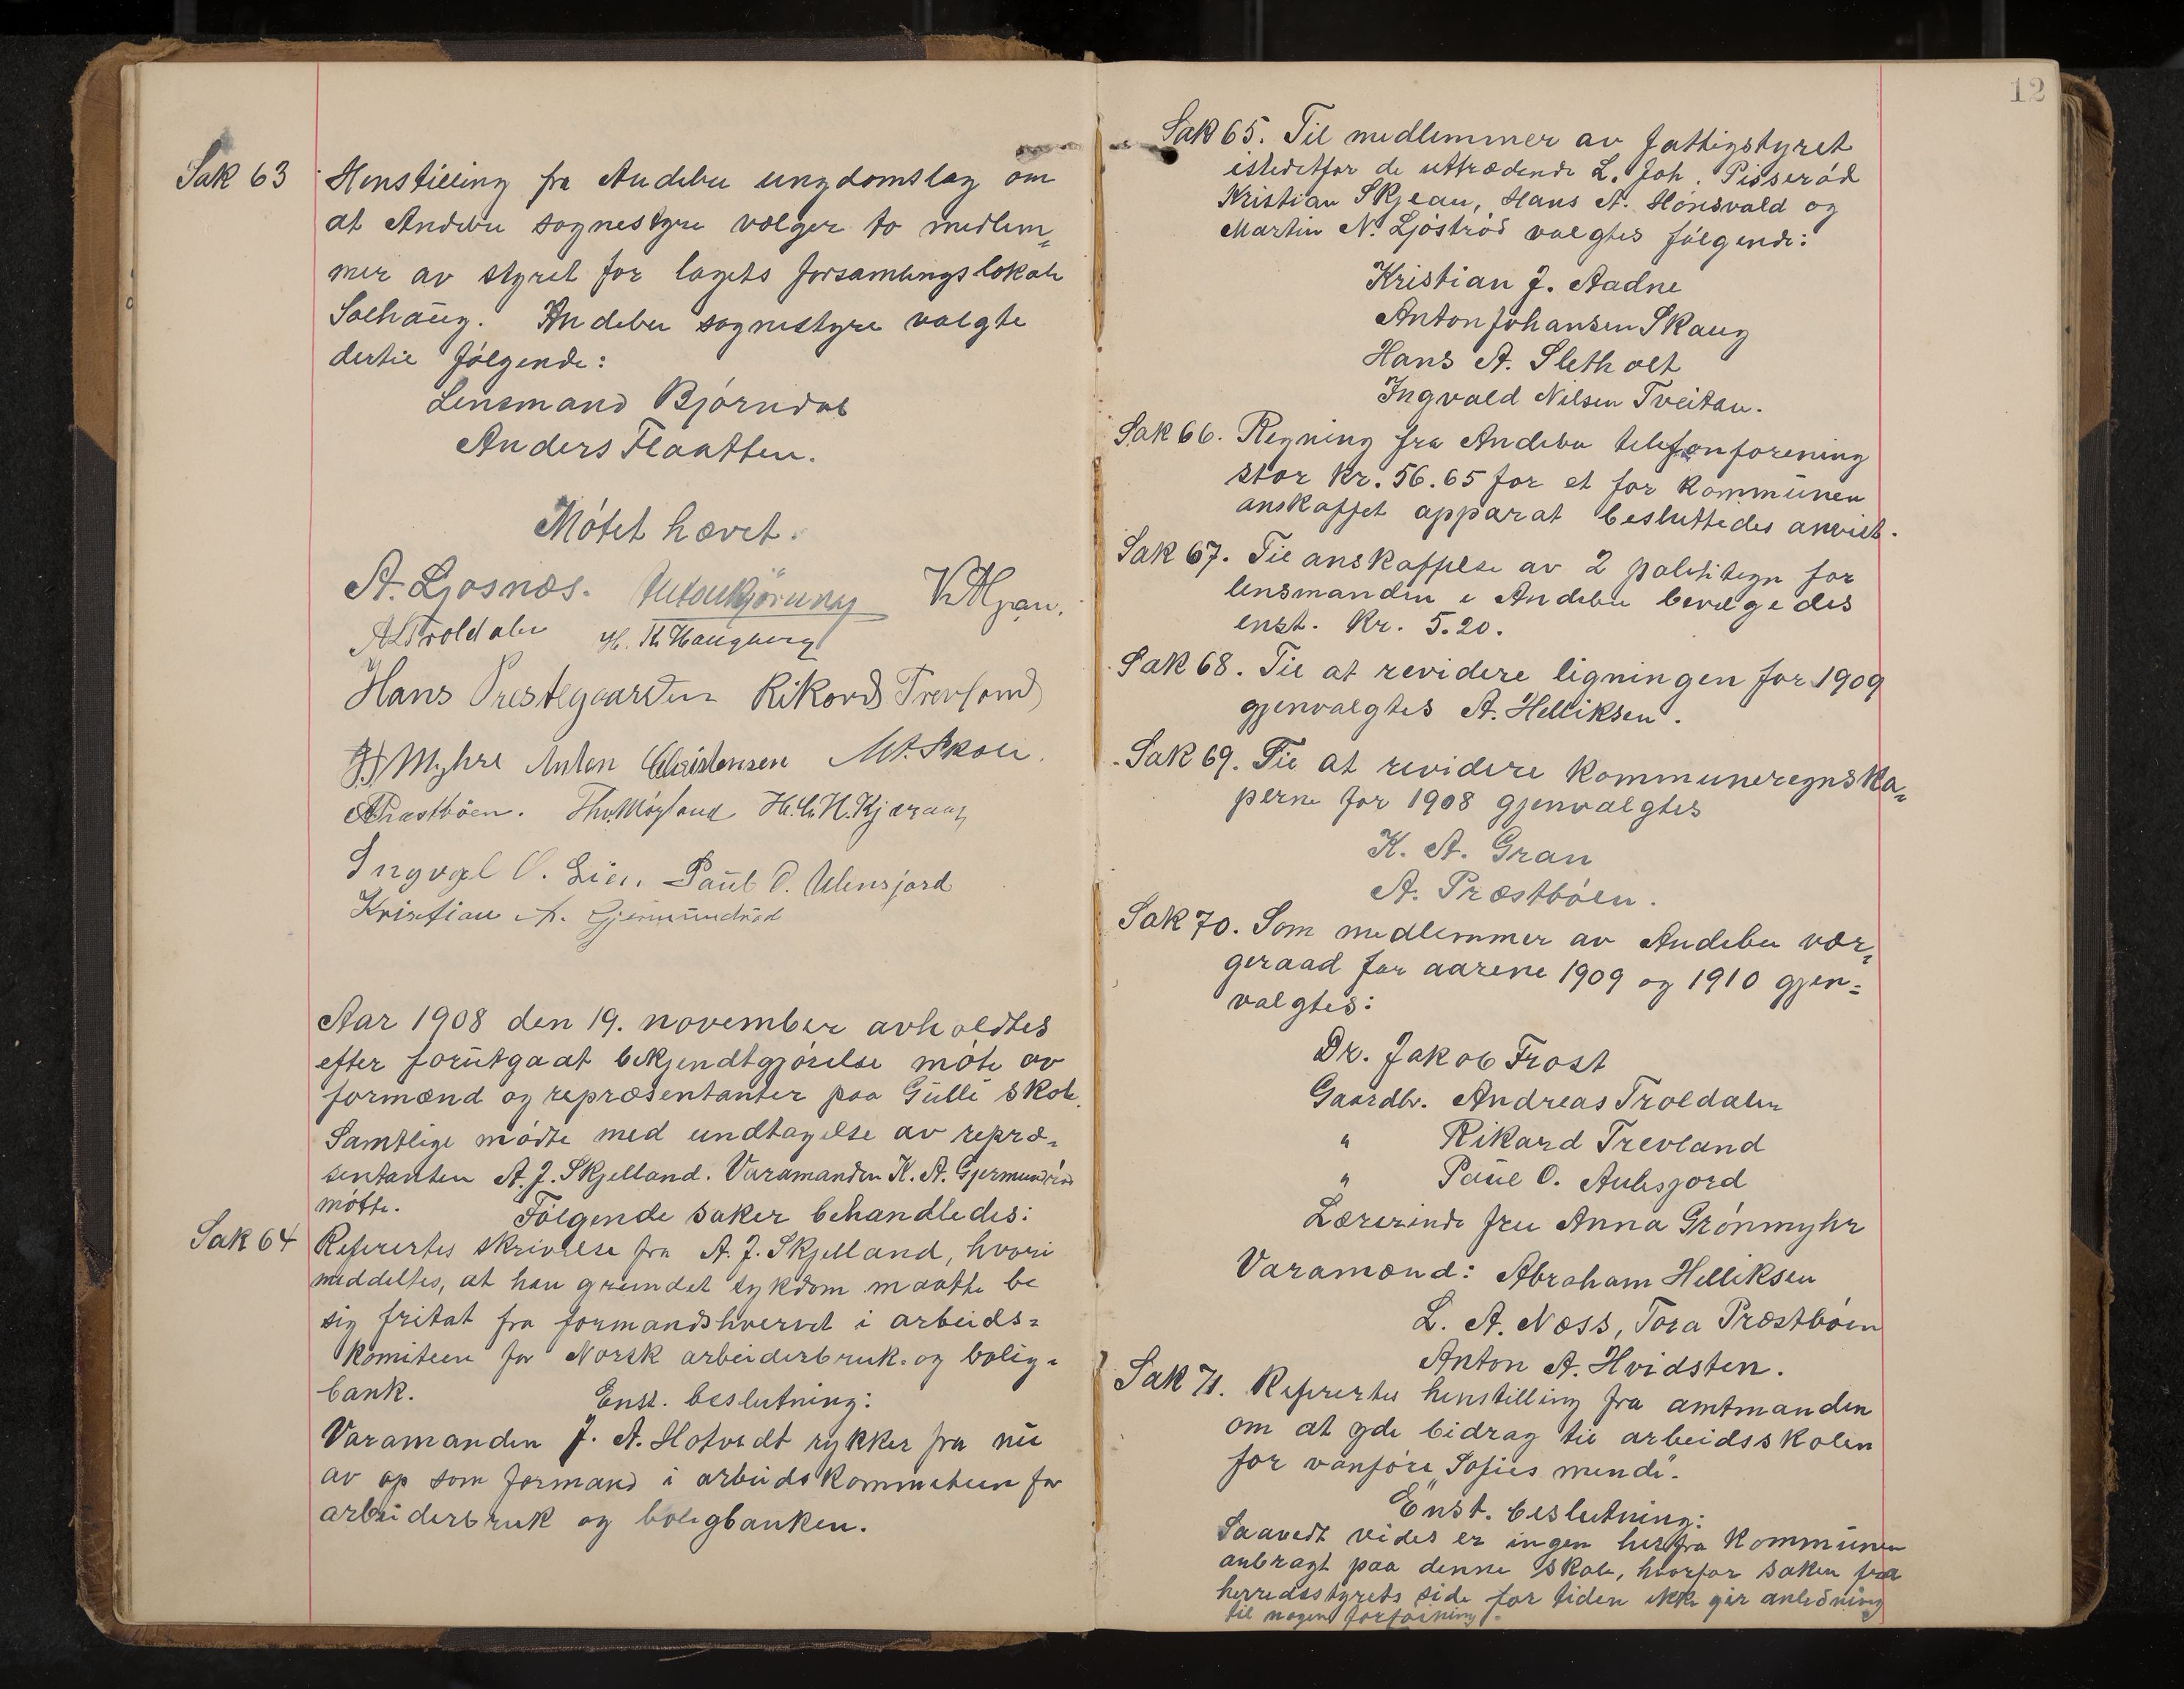 Sak 63 Henstilling fra Andebu ungdomslag om
at Andebu sognestyre vælger to medlem=
mer av styret for lagets forsamlingslokale
Solhaug. Andebu sognestyre valgte
dertil følgende:
Lensmand Bjørndal
Anders Flaatten.
Møtet hævet.
A. Ljosnæs.
A L Troldalen H. K. Haugberg
Hans Prestegaarden Rikard Trevland
Myhre Anton Christensen M. A. Skou.
A Præstbøen. Thv. Møyland H. C. H. Kjæraas
Ingval O. Lien. Paul O. Aulesjord
Kristian A. Gjermundrød
Aar 1908 den 19. november avholdtes
efter forutgaat bekjendtgjørelse møte av
formænd og repræsentanter paa Gulli skole.
Samtlige mødte med undtagelse av repræ=
sentanten A. J. Skjelland. Varamanden K. A. Gjermundrød
møtte. Følgende saker behandledes:
Sak 64 Referertes skrivelse fra A. J. Skjelland, hvori
meddeltes, at han grundet sykdom maatte be
sig fritat fra formandshvervet i arbeids=
komiteen for Norsk arbeiderbruk- og bolig=
bank. Enst. beslutning:
Varamanden J. A. Hotvedt rykker fra nu
av op som formand i arbeidskommiteen for
arbeiderbruk og boligbanken.
12
Sak 65. Til medlemmer av fattigstyret
istedetfor de uttrædende L. Joh. Pisserød
Kristian Skjeau, Hans A. Hønsvald og
Martin N. Ljøstrød valgtes følgende:
Kristian J. Aadne
Anton Johansen Skaug
Hans A. Sletholt
Ingvald Nilsen Tveitan.
Sak 66. Regning fra Andebu telefonforening
stor kr. 56.65 for et for kommunen
anskaffet apparat besluttedes anvist.
Sak 67. Til anskaffelse av 2 polititegn for
lensmanden i Andebu bevilgedes
enst. kr. 5.20.
Sak 68. Til at revidere ligningen for 1909
gjenvalgtes A. Helliksen.
Sak 69. Til at revidere kommuneregnska=
perne for 1908 gjenvalgtes
K. A. Gran
A. Præstbøen.
Sak 70. Som medlemmer av Andebu vær=
geraad for aarene 1909 og 1910 gjen=
valgtes:
Dr. Jakob Frost
Gaardbr. Andreas Troldalen
" Rikard Trevland
" Paul O. Aulesjord
Lærerinde fru Anna Grønmyhr
Varamænd: Abraham Helliksen
L. A. Næss, Tora Præstbøen
Anton A. Hvidsten.
Sak 71. Referertes henstilling fra amtmanden
om at yde bidrag til arbeidsskolen
for vanføre „Sofies minde".
Enst. beslutning:
Saavedt vides er ingen herfra kommunen
anbragt paa denne skole, hvorfor saken fra
herredsstyrets side for tiden ikke gir anledning
til nogen forføining.